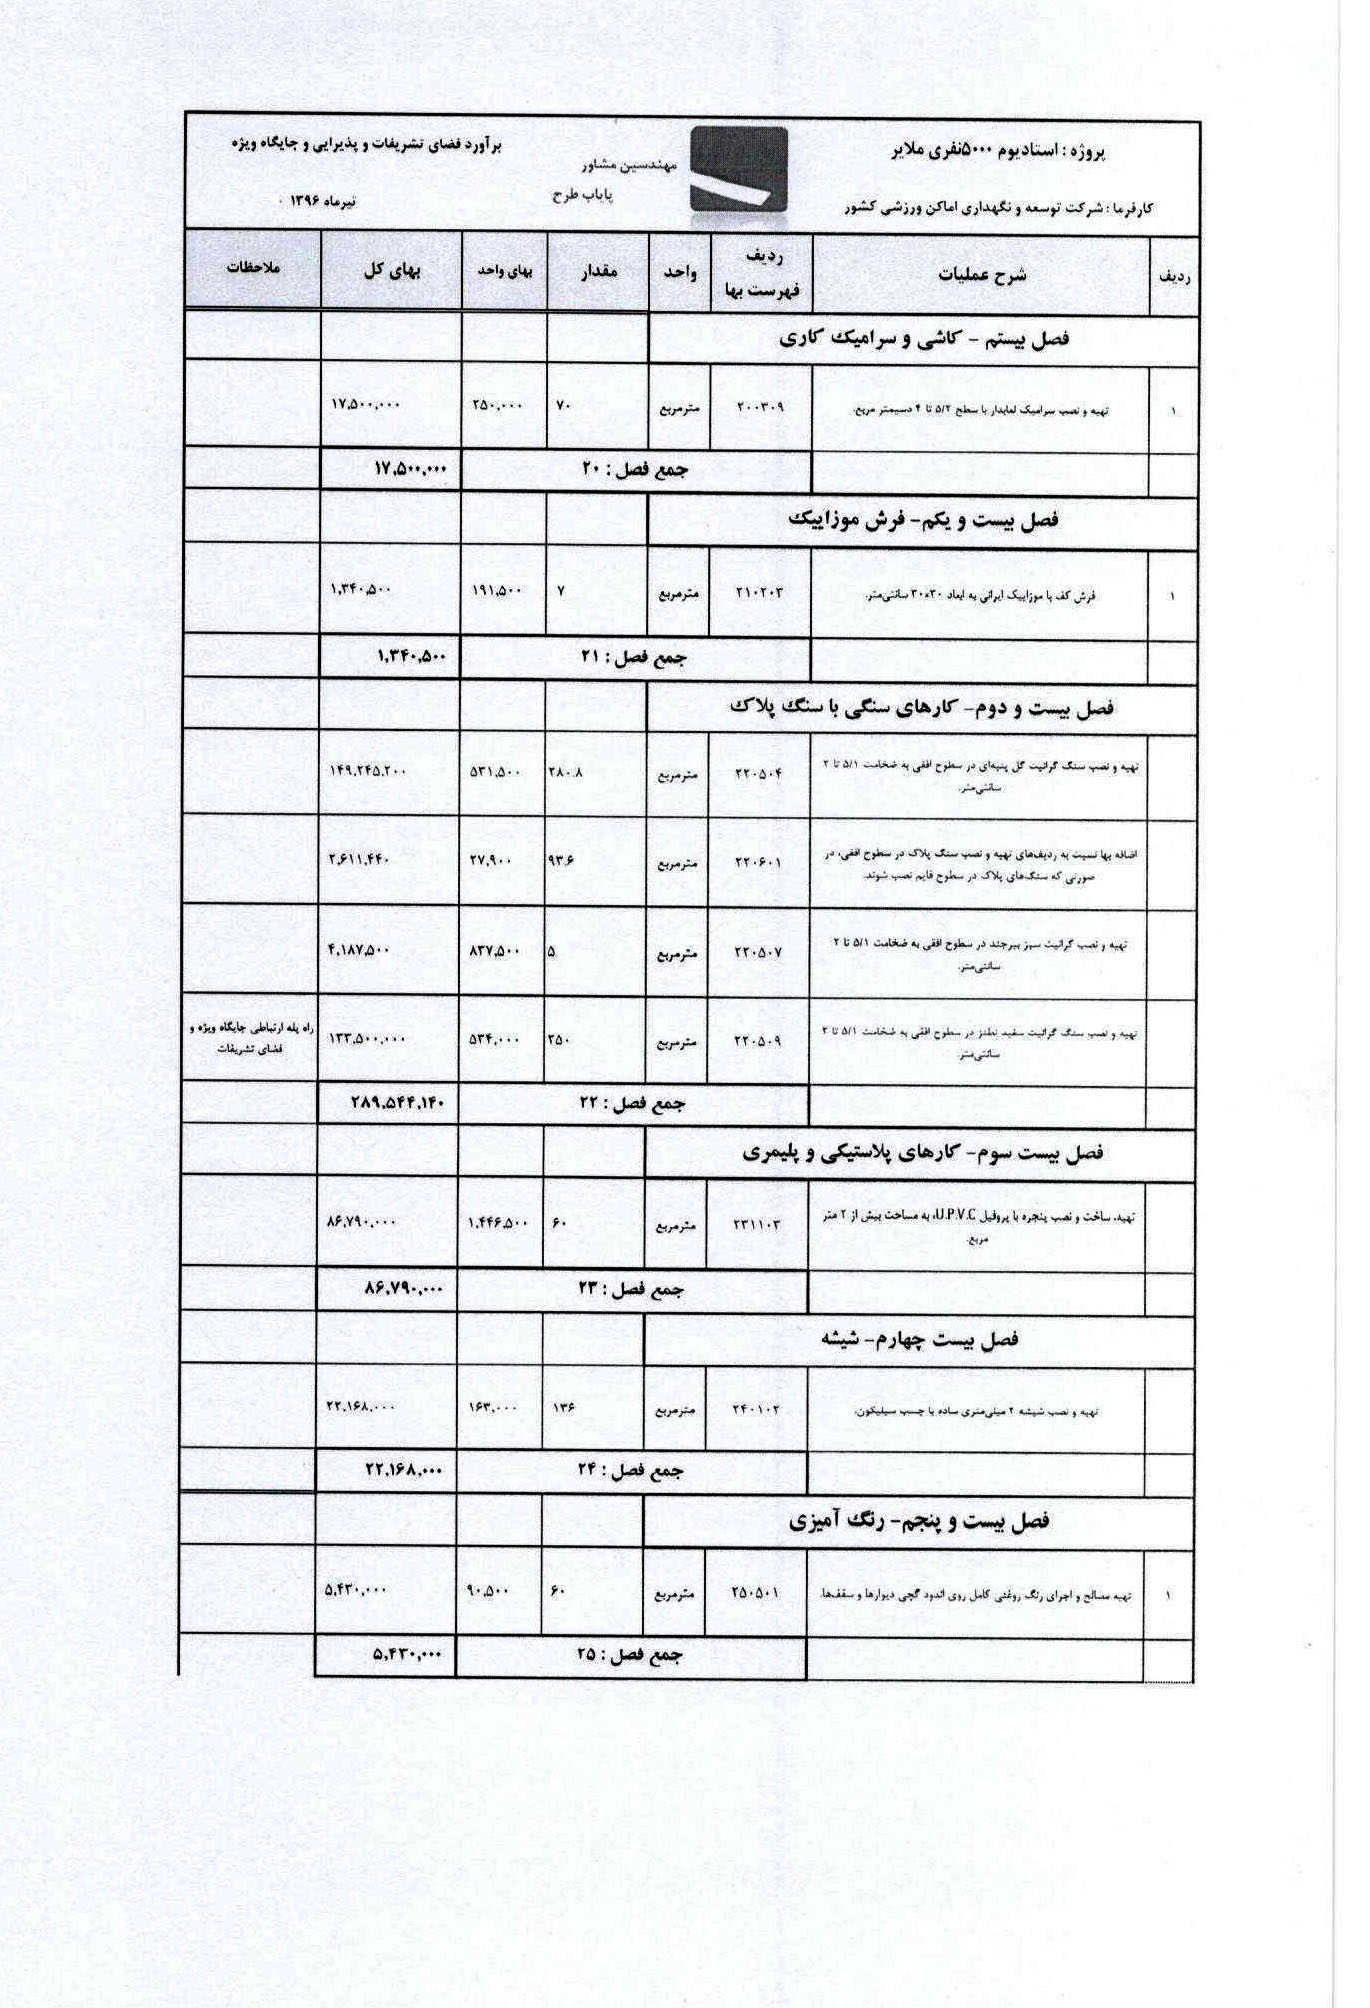 پروژه : استادیوم ۵۰۰۰نفری ملایر
مهندسین مشاور
برآورد فضای تشریفات و پذیرایی و جایگاه ویژه
کارفرما : شرکت توسعه و نگهداری اماکن ورزشی کشور
پایاب طرح
تیرماه ۱۳۹۶
ردیف شرح عملیات ردیف فهرست بها واحد مقدار بهای واحد بهای کل ملاحظات
فصل بیستم - کاشی و سرامیک کاری
۱ تهیه و نصب سرامیک لعابدار با سطح ۵/۲ تا ۴ دسیمتر مربع. ۲۰۰۳۰۹ مترمربع ۷۰ ۲۵۰,۰۰۰ ۱۷,۵۰۰,۰۰۰
جمع فصل : ۲۰ ۱۷,۵۰۰,۰۰۰
فصل بیست و یکم- فرش موزاییک
۱ فرش کف با موزاییک ایرانی به ابعاد ۳۰×۳۰ سانتی‌متر. ۲۱۰۲۰۳ مترمربع ۷ ۱۹۱,۵۰۰ ۱,۳۴۰,۵۰۰
جمع فصل : ۲۱ ۱,۳۴۰,۵۰۰
فصل بیست و دوم- کارهای سنگی با سنگ پلاک
تهیه و نصب سنگ گرانیت گل پنبه‌ای در سطوح افقی به ضخامت ۵/۱ تا ۲
سانتی‌متر. ۲۲۰۵۰۴ مترمربع ۲۸۰.۸ ۵۳۱,۵۰۰ ۱۴۹,۲۴۵,۲۰۰
اضافه بها نسبت به ردیف‌های تهیه و نصب سنگ پلاک در سطوح افقی، در
صورتی که سنگ‌های پلاک در سطوح قایم نصب شوند. ۲۲۰۶۰۱ مترمربع ۹۳.۶ ۲۷,۹۰۰ ۲,۶۱۱,۴۴۰
تهیه و نصب گرانیت سبز بیرجند در سطوح افقی به ضخامت ۵/۱ تا ۲
سانتی‌متر. ۲۲۰۵۰۷ مترمربع ۵ ۸۳۷,۵۰۰ ۴,۱۸۷,۵۰۰
تهیه و نصب سنگ گرانیت سفید نطنز در سطوح افقی به ضخامت ۵/۱ تا ۲
سانتی‌متر. ۲۲۰۵۰۹ مترمربع ۲۵۰ ۵۳۴,۰۰۰ ۱۳۳,۵۰۰,۰۰۰ راه پله ارتباطی جایگاه ویژه و
فضای تشریفات
جمع فصل : ۲۲ ۲۸۹,۵۴۴,۱۴۰
فصل بیست سوم- کارهای پلاستیکی و پلیمری
تهیه، ساخت و نصب پنجره با پروفیل U.P.V.C، به مساحت بیش از ۲ متر
مربع. ۲۳۱۱۰۳ مترمربع ۶۰ ۱,۴۴۶,۵۰۰ ۸۶,۷۹۰,۰۰۰
جمع فصل : ۲۳ ۸۶,۷۹۰,۰۰۰
فصل بیست چهارم- شیشه
تهیه و نصب شیشه ۴ میلی‌متری ساده با چسب سیلیکون. ۲۴۰۱۰۲ مترمربع ۱۳۶ ۱۶۳,۰۰۰ ۲۲,۱۶۸,۰۰۰
جمع فصل : ۲۴ ۲۲,۱۶۸,۰۰۰
فصل بیست و پنجم- رنگ آمیزی
۱ تهیه مصالح و اجرای رنگ روغنی کامل روی اندود گچی دیوارها و سقف‌ها. ۲۵۰۵۰۱ مترمربع ۶۰ ۹۰,۵۰۰ ۵,۴۳۰,۰۰۰
جمع فصل : ۲۵ ۵,۴۳۰,۰۰۰